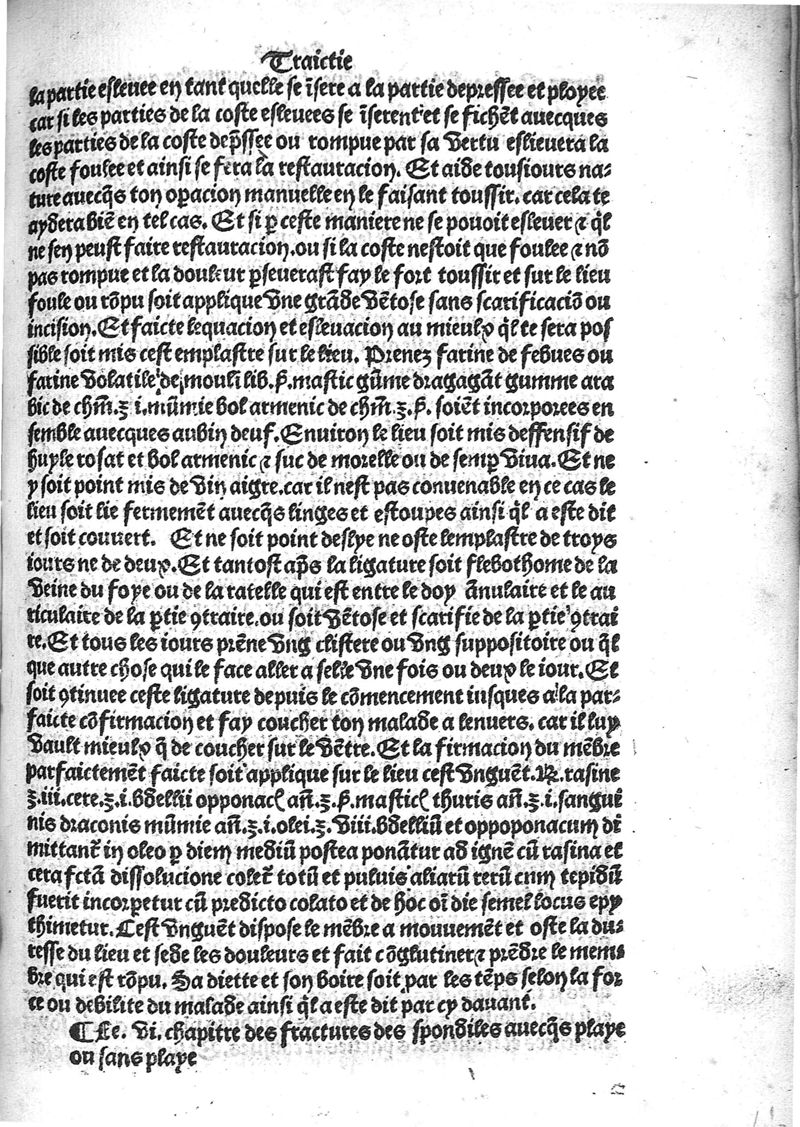 Traictie
la partie eslevee en tant quelle se īsere a la partie depressee et ployee
car si les parties de la coste eslevees se īserent et se fichēt avecques
les parties de la coste dep̄ssee ou rompue par sa vertu eslievera la
coste foulee et ainsi se fera la restauracion. Et aide tousiours na-
ture avecq̄s ton op̄acion manuelle en le faisant toussir. car cela te
aydera biē en tel cas. Et si p̄ ceste maniere ne se povoit eslever ⁊ q̄l
ne sen peust faire restauracion. ou si la coste nestoit que foulee ⁊ nō
pas rompue et la douleur p̄severast fay le fort toussir et sur le lieu
foule ou rōpu soit applique vne grāde vētose sans scarificaciō ou
incision. Et faicte lequacion et eslevacion au mieulx q̄l te sera pos
sible soit mis cest emplastre sur le lieu. Prenez farine de febves ou
farine volatile de moulī lib. ß. mastic gūme dragagāt gumme ara
bic de chm̄. ʒ i. mūmie bol armenic de chm̄. ʒ. ß. soiēt incorporees en
semble avecques aubin deuf. Environ le lieu soit mis deffensif de
huyle rosat et bol armenic ⁊ suc de morelle ou de semp̄ viva. Et ne
y soit point mis de vin aigre. car il nest pas convenable en ce cas le
lieu soit lie fermemēt avecq̄s linges et estoupes ainsi q̄l a este dit
et soit couvert. Et ne soit point deslye ne oste lemplastre de troys
iours ne de deux. Et tantost ap̄s la ligature soit flebothome de la
veine du foye ou de la ratelle qui est entre le doy ānulaire et le au
riculaire de la p̄tie ꝯtraire. ou soit vētose et scarifie de la p̄tie ꝯtrai
re. Et tous les iours prēne vng clistere ou vng suppositoire ou q̄l
que autre chose qui le face aller a selle vne fois ou deux le iour. Et
soit ꝯtinuee ceste ligature depuis le cōmencement iusques a la par-
faicte cōfirmacion et fay coucher ton malade a lenvers. car il luy
vault mieulx q̄ de coucher sur le vētre. Et la firmacion du mēbre
parfaictemēt faicte soit applique sur le lieu cest vnguēt. ℞. rasine
ʒ. iii. cere. ʒ. i. bdellii opponac̄ an̄. ʒ. ß. mastic̄ thuris an̄. ʒ. i. sangui
nis draconis mūmie an̄. ʒ. i. olei. ʒ. viii. bdelliū et oppoponacum dī
mittant̄ in oleo p̄ diem mediū postea ponāt̄ur ad ignē cū rasina et
cera fctā dissolucione colet̄ totū et pulvis aliarū rerū cum tepidū
fuerit incorpetur cū predicto colato et de hoc oī die semel locus epy
thimetur. Cest vnguēt dispose le mēbre a mouvement et oste la du-
resse du lieu et sede les douleurs et fait cōglutiner ⁊ prēdre le mem-
bre qui est rōpu. Sa diette et son boire soit par les tēps selon la for
ce ou debilite du malade ainsi q̄l a este dit par cy davant.
¶ Le. vi. chapitre des fractures des spondiles avecq̄s playe
ou sans playe